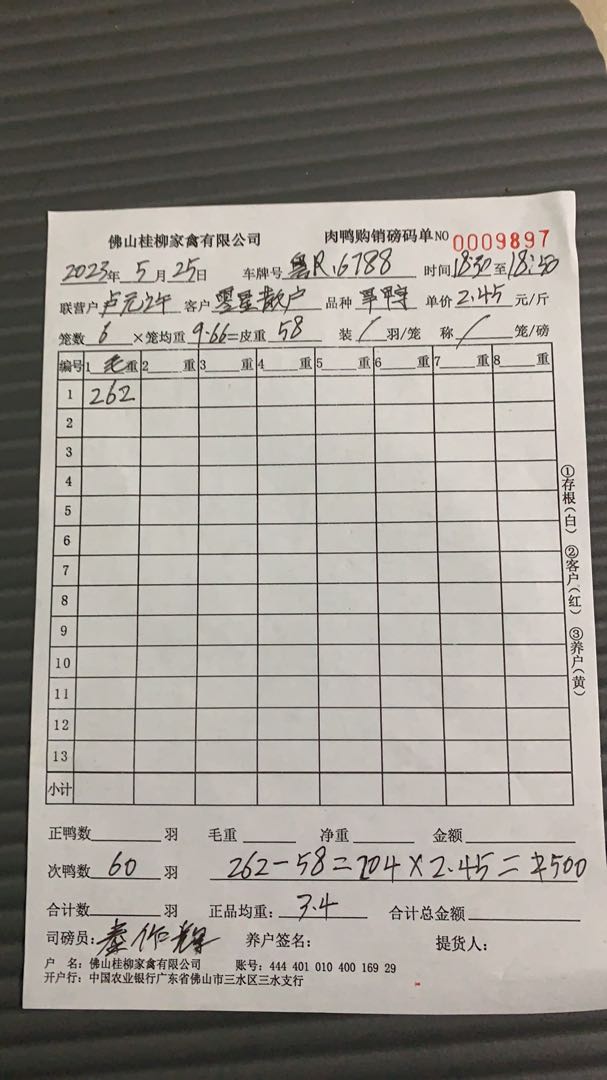 佛山桂柳家禽有限公司 肉鸭购销磅码单 NO 0009897
2023年 5月 25日 车牌号 R.6788 时间 18:30 至 18:50
联营户 卢元 客户 零星散户 品种 单价 2.45 元/斤
笼数 6 ×笼均重 9.66 =皮重 58 装 / 羽/笼 称 / 笼/磅
编号 1 毛 重 2 重 3 重 4 重 5 重 6 重 7 重 8 重
1 262
2
3
4
5
6
7
8
9
10
11
12
13
小计
①存根(白) ②客户(红) ③养户(黄)
正鸭数 羽 毛重 净重 金额
次鸭数 60 羽 262-58=204×2.45=500
合计数 羽 正品均重: 3.4 合计总金额
司磅员: 养户签名: 提货人:
户 名: 佛山桂柳家禽有限公司 账号: 444 401 010 400 169 29
开户行: 中国农业银行广东省佛山市三水区三水支行